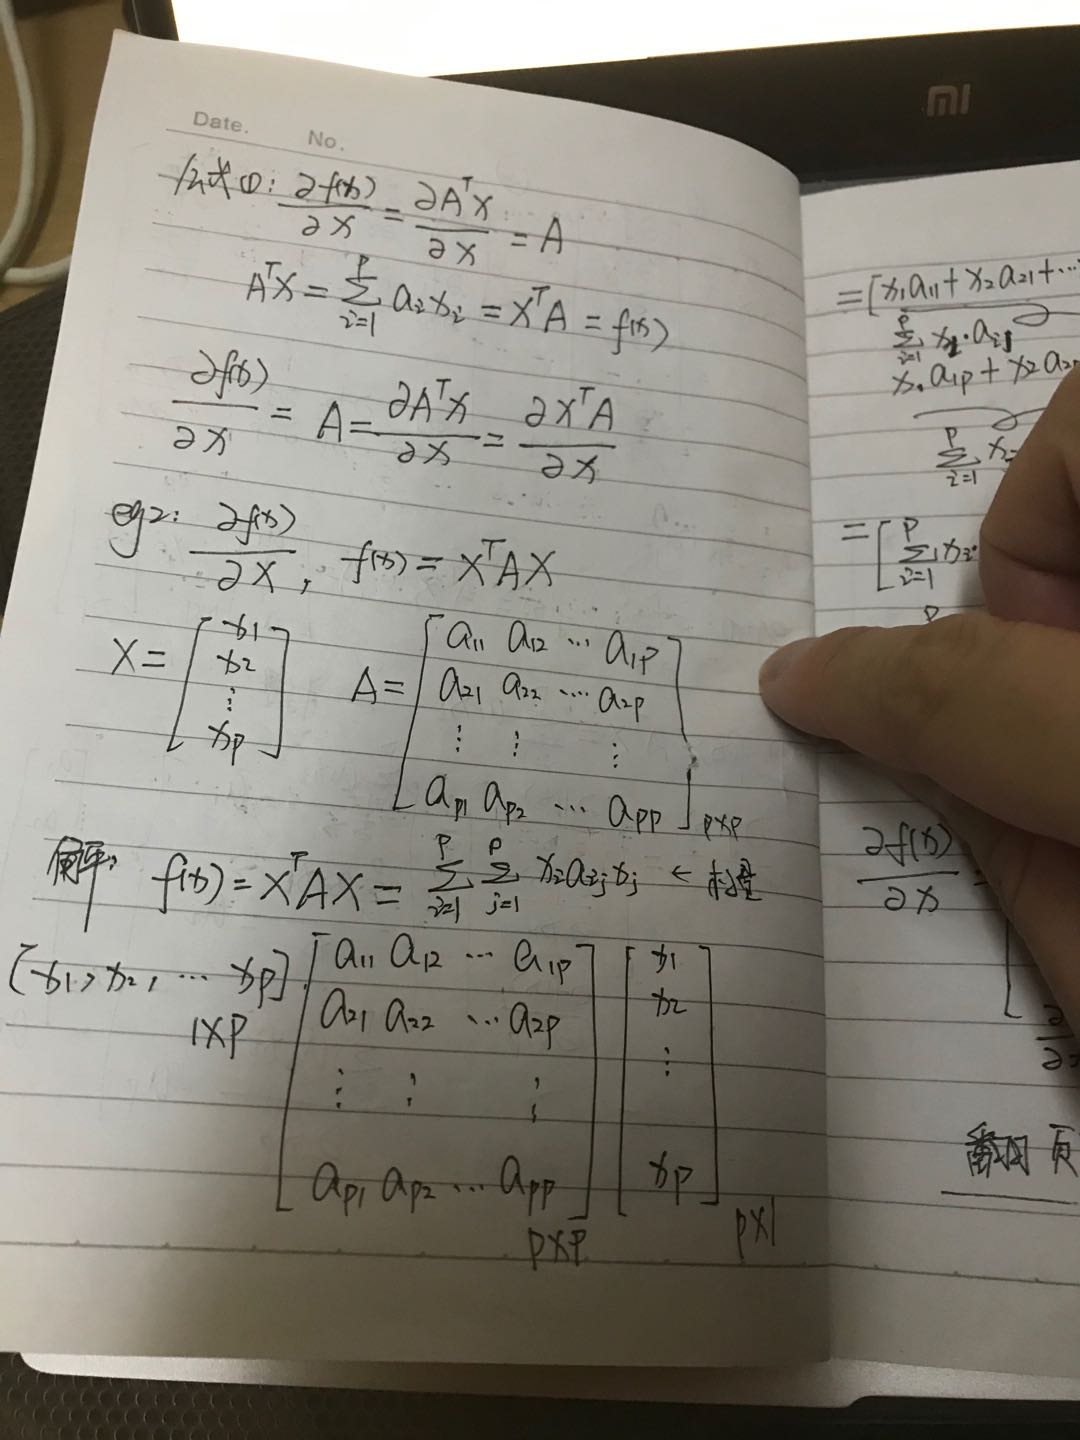 mi
Date. No.
公式①: ∂f(x)/∂X = ∂AᵀX/∂X = A
AᵀX = Σᵢ₌₁ᵖ aᵢxᵢ = XᵀA = f(x)
∂f(x)/∂X = A = ∂AᵀX/∂X = ∂XᵀA/∂X
eg2: ∂f(x)/∂X, f(x) = XᵀAX
X = [x₁ x₂ ⋮ xₚ] A = [a₁₁ a₁₂ ⋯ a₁ₚ
a₂₁ a₂₂ ⋯ a₂ₚ
⋮ ⋮ ⋮
aₚ₁ aₚ₂ ⋯ aₚₚ] p×p
解: f(x) = XᵀAX = Σᵢ₌₁ᵖ Σⱼ₌₁ᵖ xᵢaᵢⱼxⱼ ← 标量
[x₁, x₂, ⋯ xₚ]. [a₁₁ a₁₂ ⋯ a₁ₚ] [x₁
1×p a₂₁ a₂₂ ⋯ a₂ₚ x₂
⋮ ⋮ ⋮ ⋮
aₚ₁ aₚ₂ ⋯ aₚₚ xₚ]
p×p p×1
= [x₁a₁₁ + x₂a₂₁ + ⋯
Σᵢ₌₁ᵖ xᵢ·aᵢ₁
x₁a₁ₚ + x₂a₂ₚ
Σᵢ₌₁ᵖ xᵢ
= [Σᵢ₌₁ᵖ xᵢ·
p
∂f(x)/∂X =
翻页